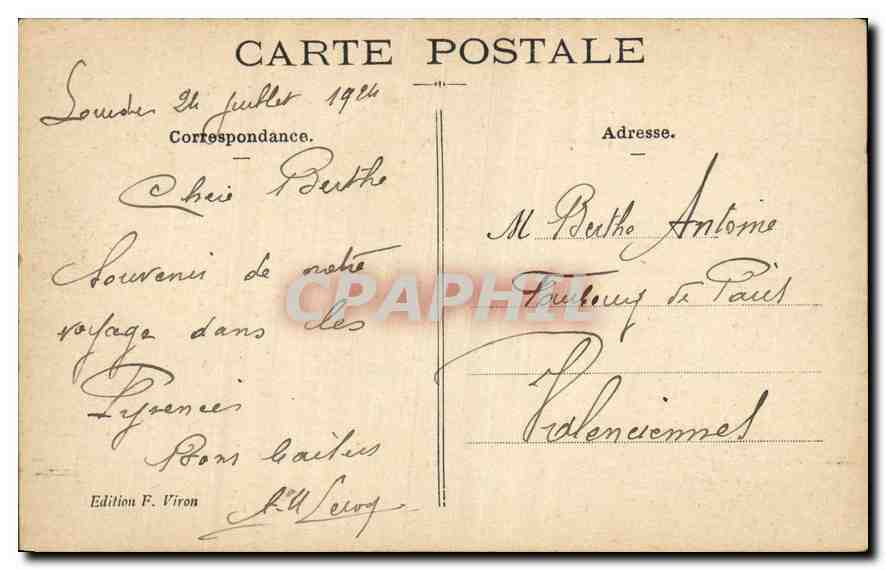 CARTE POSTALE
Lourdes 24 juillet 1924
Correspondance.
Chère Berthe
Souvenir de notre
voyage dans les
Pyrénées
Bons baisers
Leroy
Edition F. Viron
Adresse.
M Berthe Antoine
Faubourg de Paris
Valenciennes
CPAPHIL